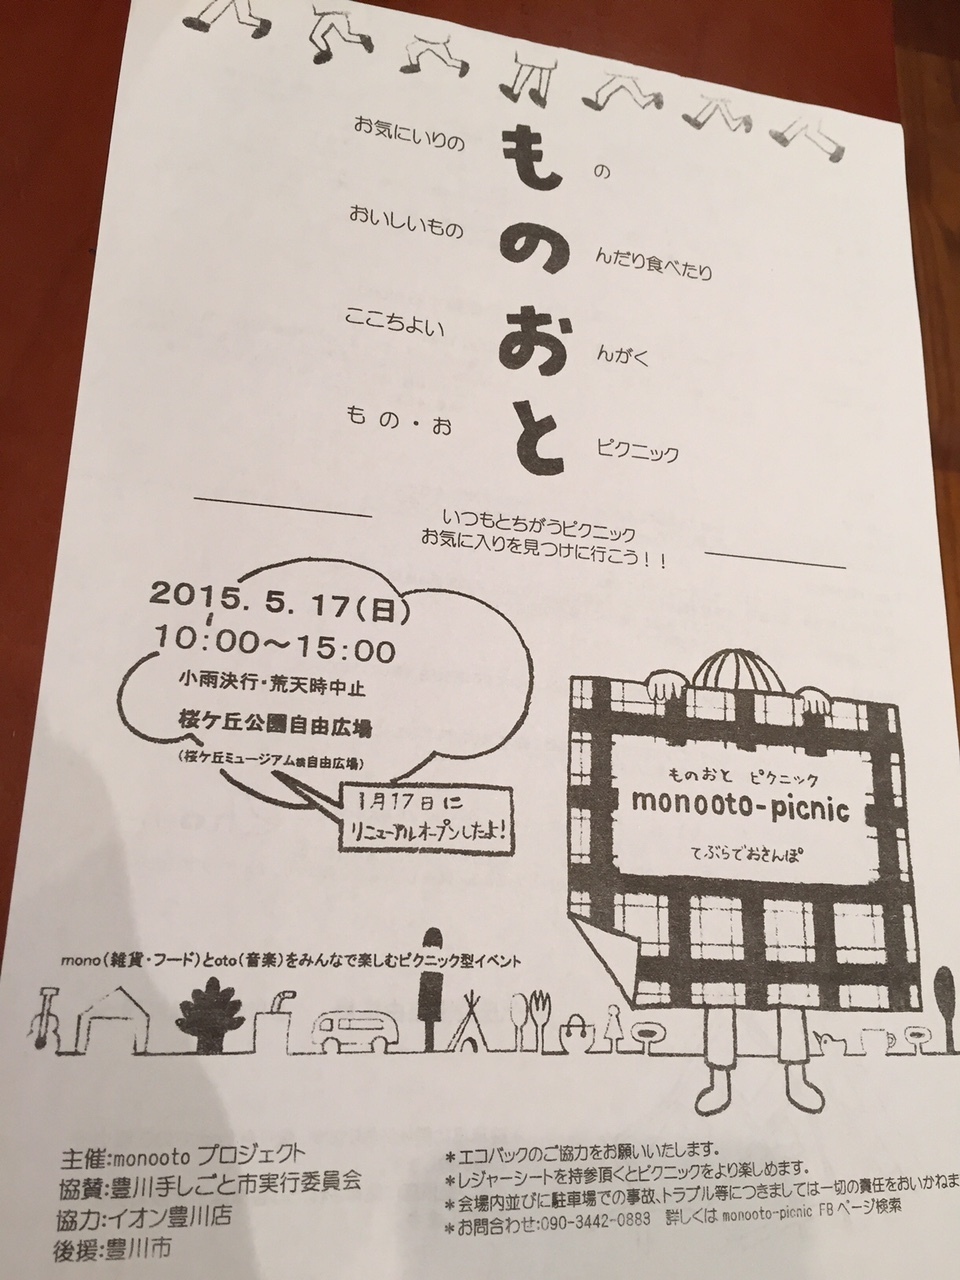 お気にいりの も の
おいしいもの の んだり食べたり
ここちよい お んがく
もの・お と ピクニック
いつもとちがうピクニック
お気に入りを見つけに行こう！！
2015. 5. 17(日)
10:00～15:00
小雨決行・荒天時中止
桜ケ丘公園自由広場
(桜ケ丘ミュージアム横自由広場)
1月17日に
リニューアルオープンしたよ!
ものおと ピクニック
monooto-picnic
てぶらでおさんぽ
mono(雑貨・フード)とoto(音楽)をみんなで楽しむピクニック型イベント
主催:monooto プロジェクト
協賛:豊川手しごと市実行委員会
協力:イオン豊川店
後援:豊川市
＊エコバックのご協力をお願いいたします。
＊レジャーシートを持参頂くとピクニックをより楽しめます。
＊会場内並びに駐車場での事故、トラブル等につきましては一切の責任をおいかねま
＊お問合わせ:090-3442-0883 詳しくは monooto-picnic FBページ検索